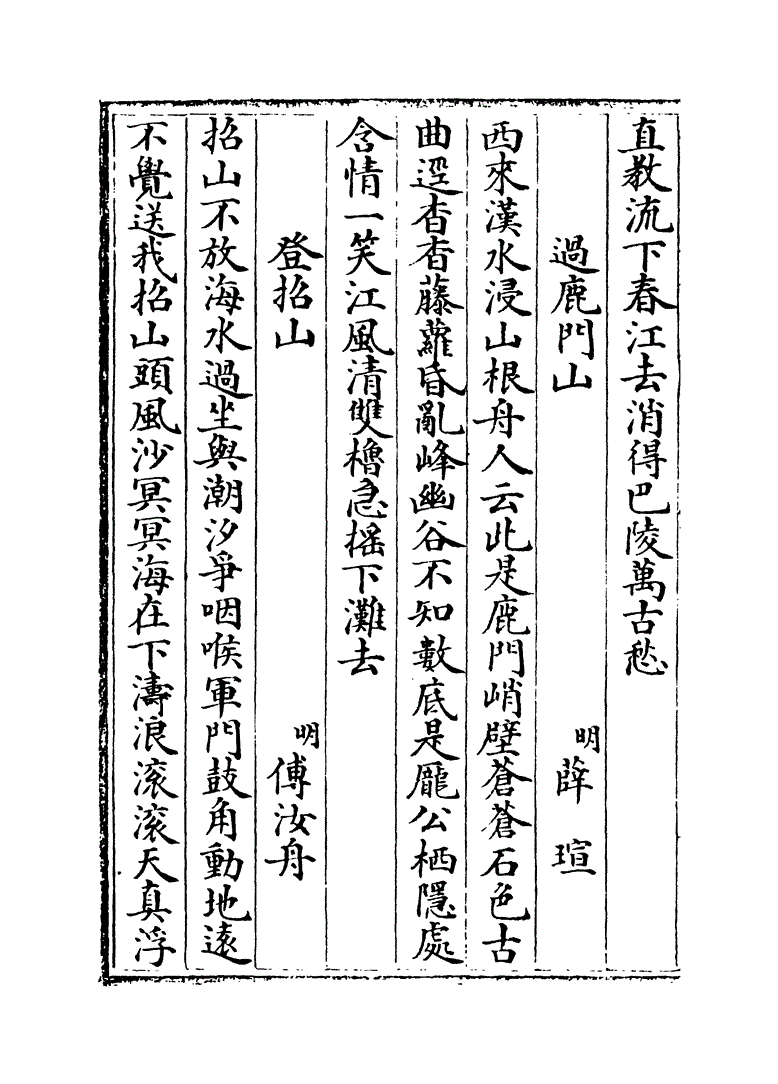 直教流下春江去消得巴陵萬古愁
過鹿門山　明薛瑄
西來漢水浸山根舟人云此是鹿門峭壁蒼蒼石色古
曲逕杳杳藤蘿昏亂峰幽谷不知數底是龎公栖隱處
含情一笑江風清雙櫓急摇下灘去
登招山　明傅汝舟
招山不放海水過坐與潮汐爭咽喉軍門鼓角動地遠
不覺送我招山頭風沙冥冥海在下濤浪滚滚天真浮